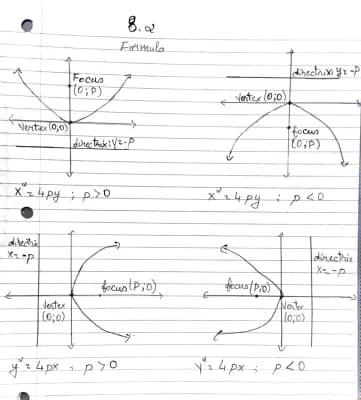 8.2
Formula
Focus
(0,P)
Vertex(0,0)
directrix: y=-P
x²=4py ; p>0
directrix y=-P
Vertex(0,0)
focus
(0,P)
x²=4py ; p<0
directrix
x=-p
Vertex
(0,0)
focus(P,0)
y²=4px , p>0
directrix
x=-p
focus(P,0)
Vertex
(0,0)
y²=4px ; p<0